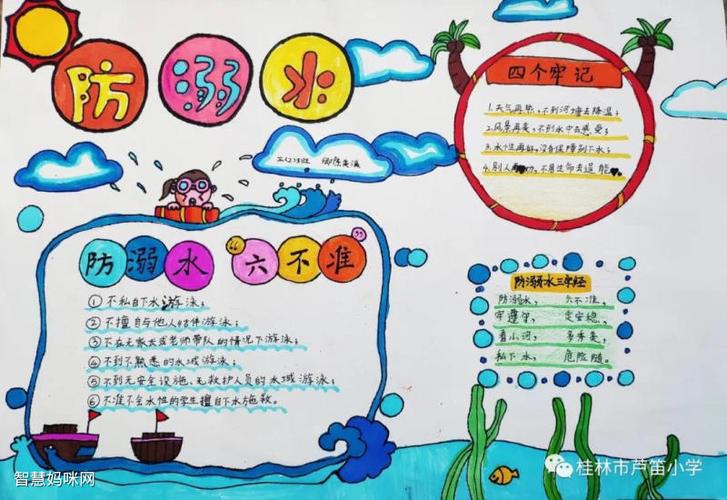 防溺水
四个牢记
1.天气再热,不到河塘去降温;
2.风景再美,不到水中去感受;
3.水性再好,没有保障别下水;
4.别人再劝,不用生命去逞能。
防溺水 “六不准”
① 不私自下水游泳;
② 不擅自与他人结伴游泳;
③ 不在无家长或老师带队的情况下游泳;
④ 不到不熟悉的水域游泳;
⑤ 不到无安全设施、无救护人员的水域游泳;
⑥ 不准不会水性的学生擅自下水施救。
防溺水三字经
防溺水, 六不准,
牢遵守, 定安稳。
看小河, 多秀美,
私下水, 危险随。
智慧妈咪网
桂林市芦笛小学